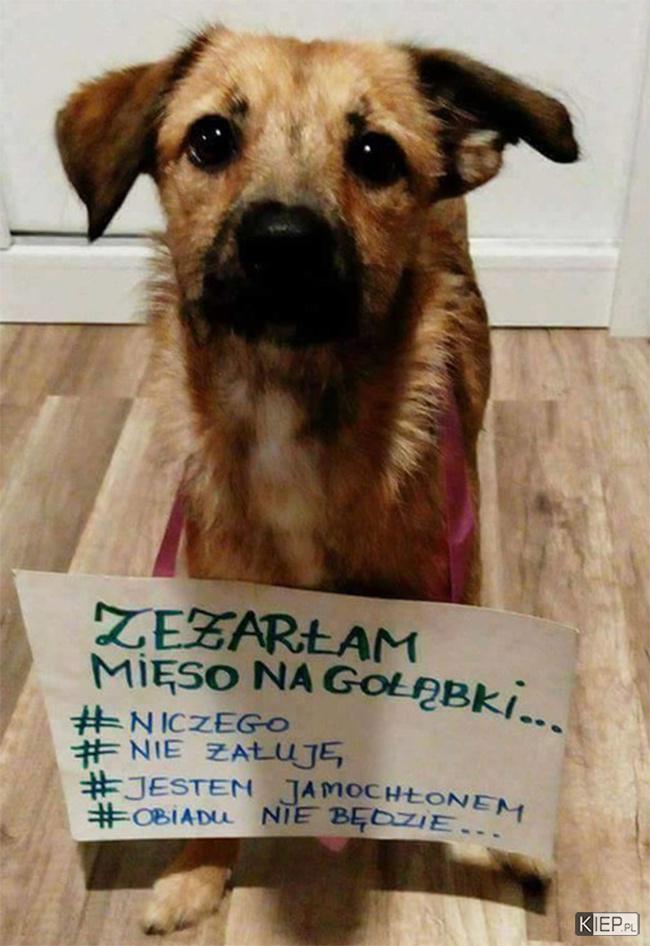 ZEŻARŁAM
MIĘSO NA GOŁĄBKI...
# NICZEGO
# NIE ŻAŁUJĘ
# JESTEM JAMOCHŁONEM
# OBIADU NIE BĘDZIE...
KIEP.PL